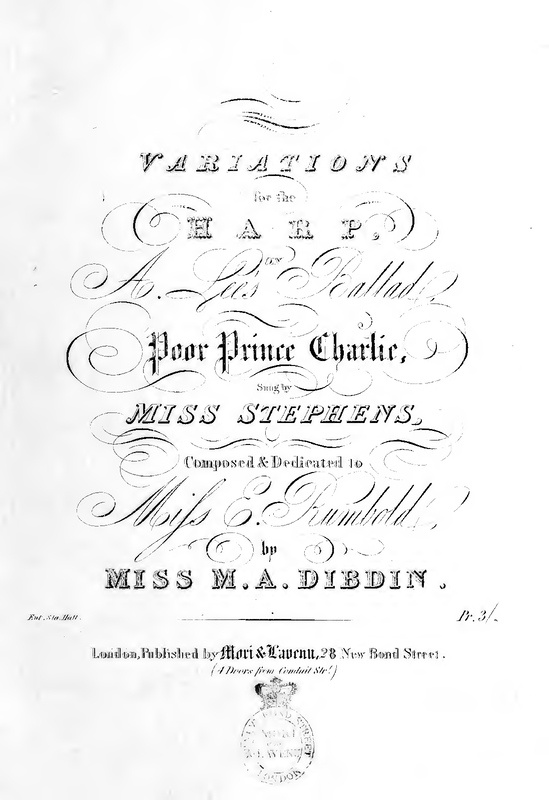 VARIATIONS
for the
HARP,
ON
A. Lee's Ballad
Poor Prince Charlie,
Sung by
MISS STEPHENS,
Composed & Dedicated to
Miſs E. Rumbold,
by
MISS M. A. DIBDIN.
Ent. Sta. Hall.
Pr. 3/-
London, Published by Mori & Lavenu, 28 New Bond Street.
(4 Doors from Conduit Str!)
NEW BOND STREET
MORI
& LAVENU
LONDON